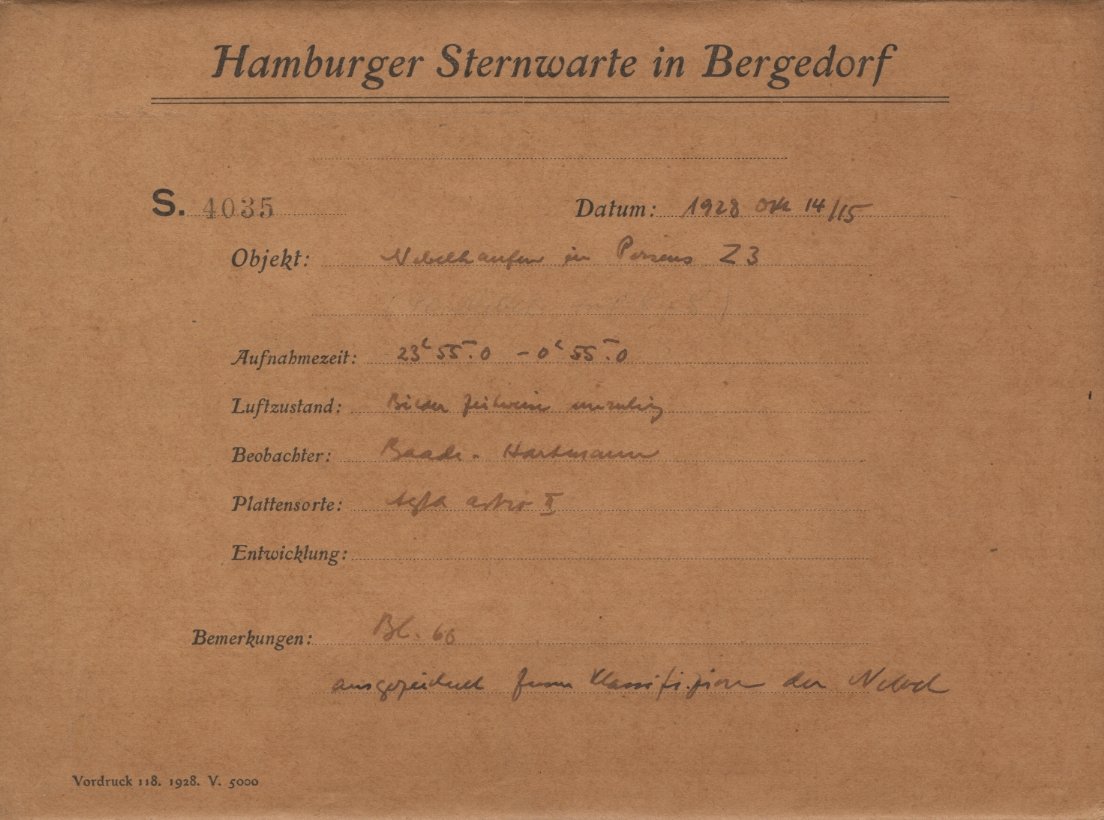 Hamburger Sternwarte in Bergedorf
S. 4035
Datum: 1928 Okt 14/15
Objekt: Nebelhaufen in Perseus Z 3
Aufnahmezeit: 23ʰ 55ᵐ.0 – 0ʰ 55ᵐ.0
Luftzustand: Bilder zeitweise unruhig
Beobachter: Baade - Hartmann
Plattensorte: Agfa astro II
Entwicklung:
Bemerkungen: Bl. 60
ausgezeichnet zum Klassifizieren der Nebel
Vordruck 118. 1928. V. 5000